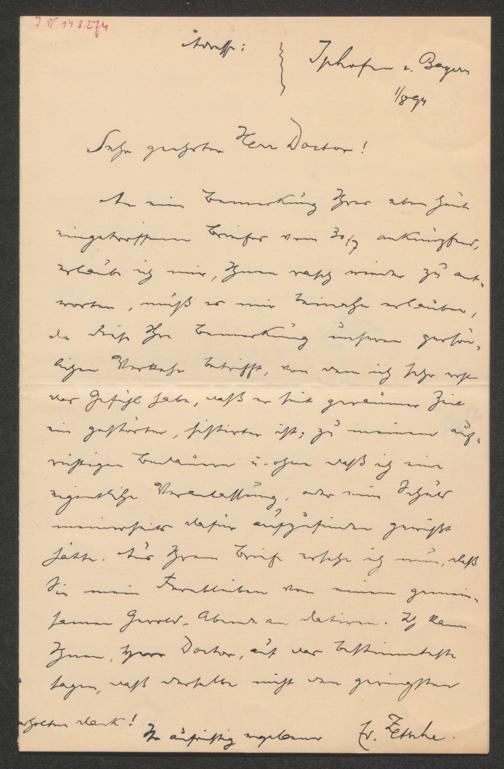 J. N. 143.274
Adresse: Iphofen i. Bayern
1/8 94
Sehr geehrter Herr Doctor!
An eine Bemerkung Ihres eben heute
eingetroffenen Briefes vom 30/7 anknüpfend,
erlaube ich mir, Ihnen rasch wieder zu ant-
worten, muß es mir beinahe erlauben,
da diese Ihre Bemerkung unseren persön-
lichen Verkehr betrifft, von dem ich sehr
das Gefühl habe, daß er seit geraumer Zeit
ein gestörter, sistirter ist; zu meinem auf-
richtigen Bedauern u. ohne daß ich eine
eigentliche Veranlassung, oder eine Schuld
meinerseits dafür aufzufinden gewußt
hätte. Aus Ihrem Brief ersehe ich nun, daß
Sie mein Fernbleiben von einem gemein-
samen Abend an datiren. Ich kann
Ihnen, Herr Doctor, auf das Bestimmteste
sagen, daß derselbe nicht den geringsten
Dank!
Ihr aufrichtig ergebener Ed. Zetsche.